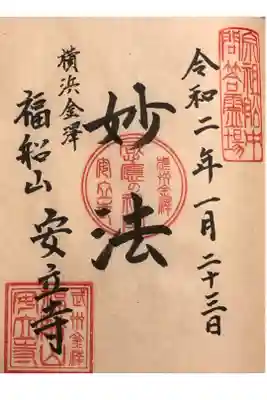 令和二年一月二十三日
宗祖船中
問答霊場
妙法
横浜金澤
福船山
安立寺
武州金澤
安立寺